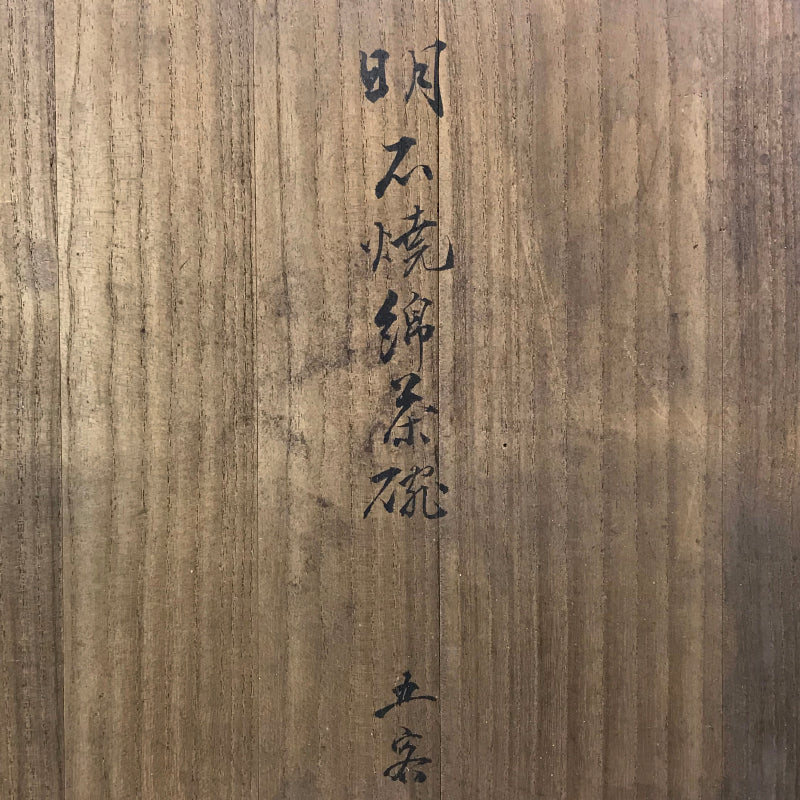 明石焼綿茶碗
五客